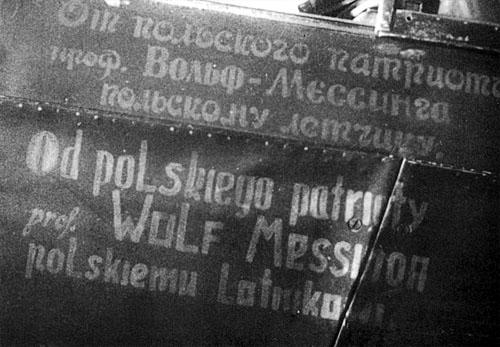 От польского патриота
проф. Вольф-Мессинга
польскому летчику.
Od polskiego patrioty
prof. WOLF MESSINGA
polskiemu Lotnikowi.